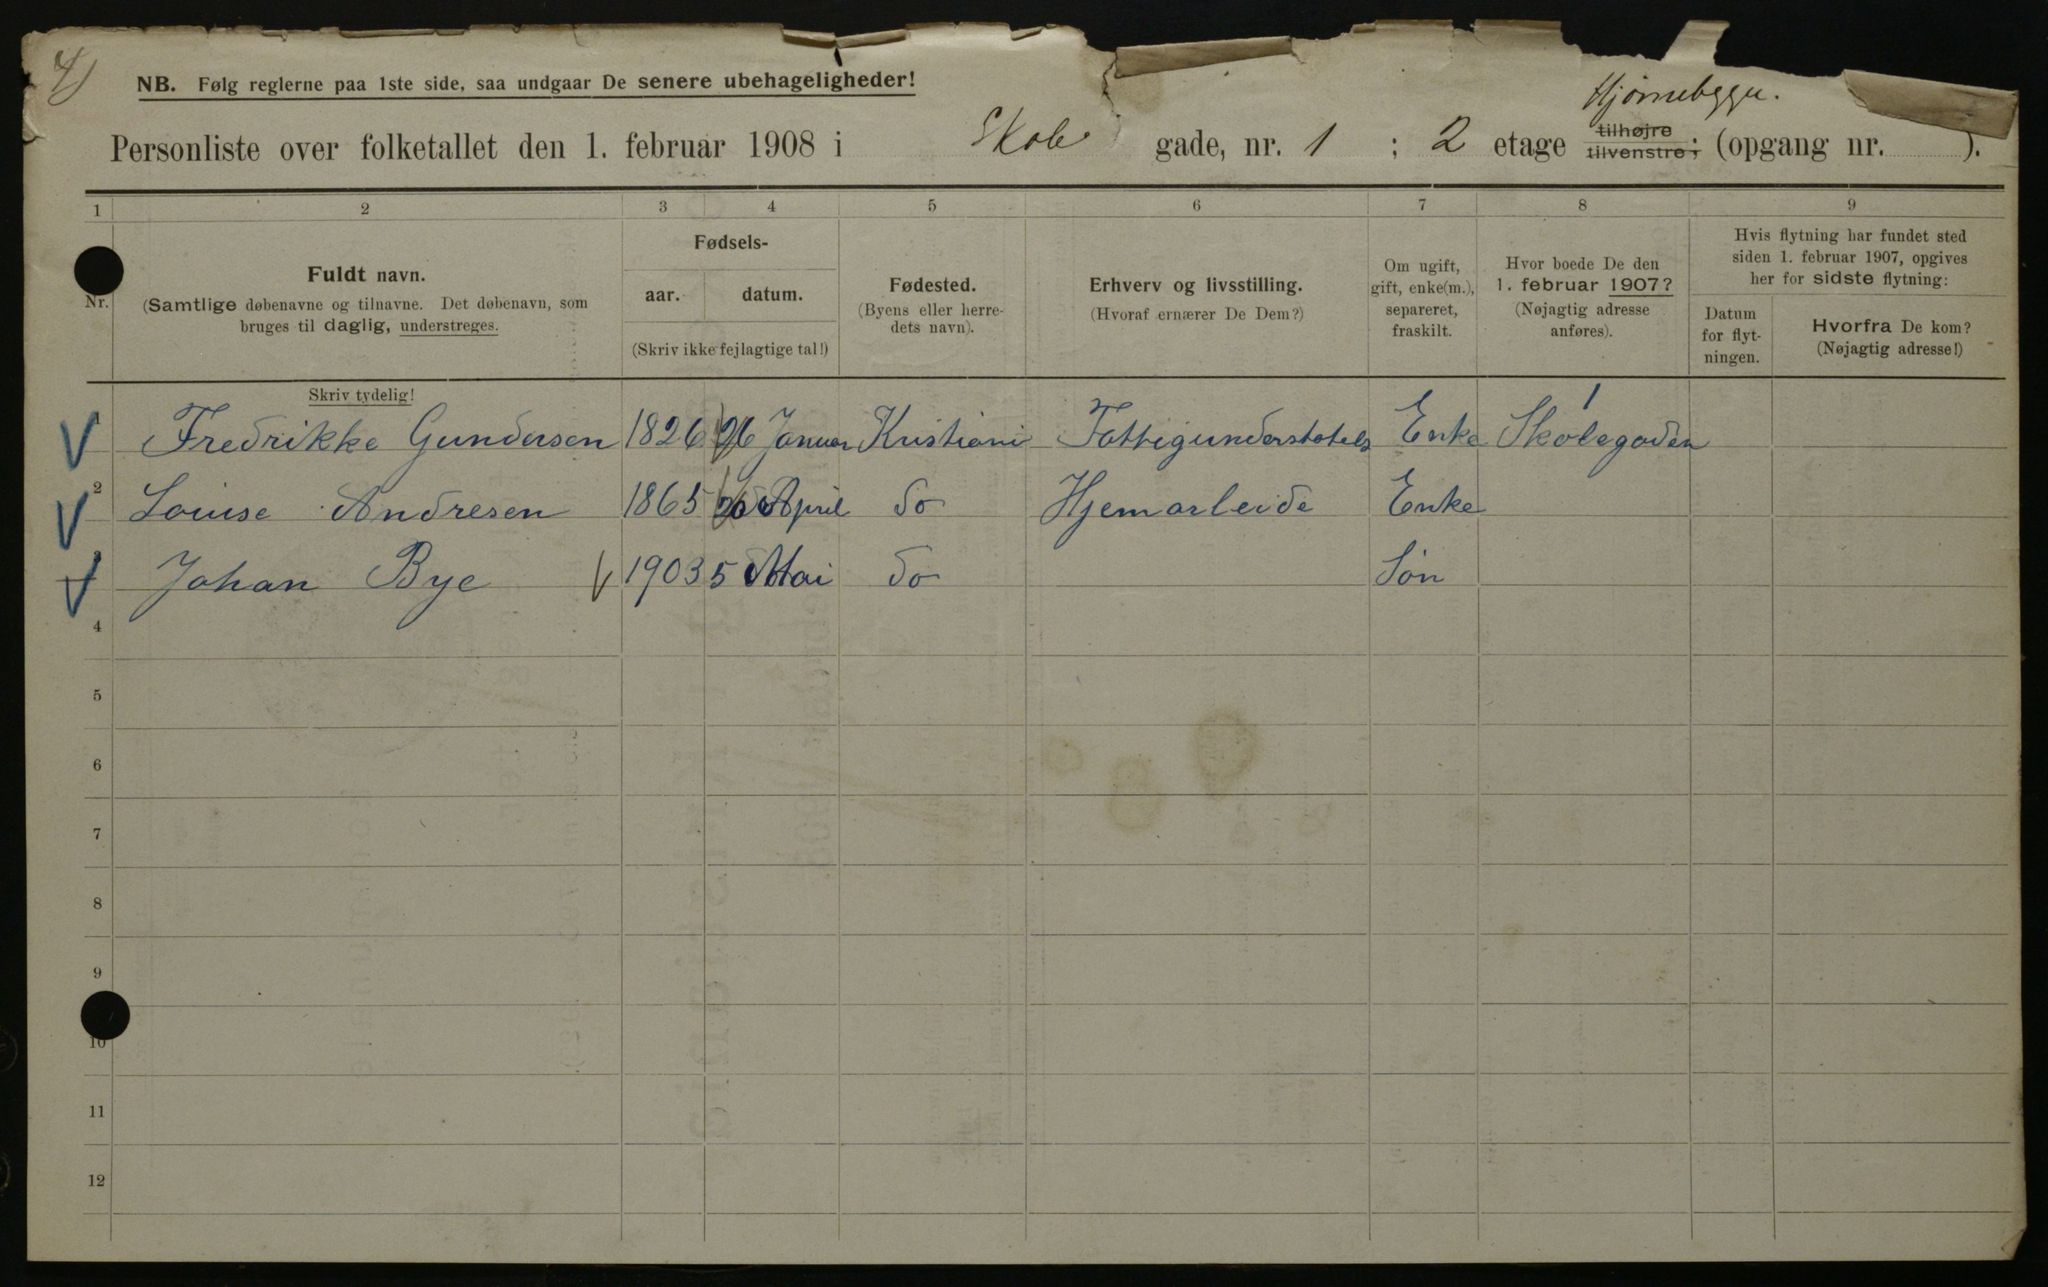 4)
NB. Følg reglerne paa 1ste side, saa undgaar De senere ubehageligheder!
Hjørnebygg.
Personliste over folketallet den 1. februar 1908 i Skole gade, nr. 1 ; 2 etage tilhøjre tilvenstre; (opgang nr. ).
1 2 3 4 5 6 7 8 9
Nr.
Fuldt navn.
(Samtlige døbenavne og tilnavne. Det døbenavn, som
bruges til daglig, understreges.
Fødsels-
aar. datum.
(Skriv ikke fejlagtige tal!)
Fødested.
(Byens eller herre-
dets navn).
Erhverv og livsstilling.
(Hvoraf ernærer De Dem?)
Om ugift,
gift, enke(m.),
separeret,
fraskilt.
Hvor boede De den
1. februar 1907?
(Nøjagtig adresse
anføres).
Hvis flytning har fundet sted
siden 1. februar 1907, opgives
her for sidste flytning:
Datum
for flyt-
ningen.
Hvorfra De kom?
(Nøjagtig adresse!)
Skriv tydelig!
Fredrikke Gundersen 1826 26 Januar Kristiani Fattigunderstotels Enke Skolegaden 1
2 Louise Andresen 1865 26 April do Hjemarleide Enke
Johan Bye 1903 5 Mai do Søn
4
5
6
7
8
9
10
11
12